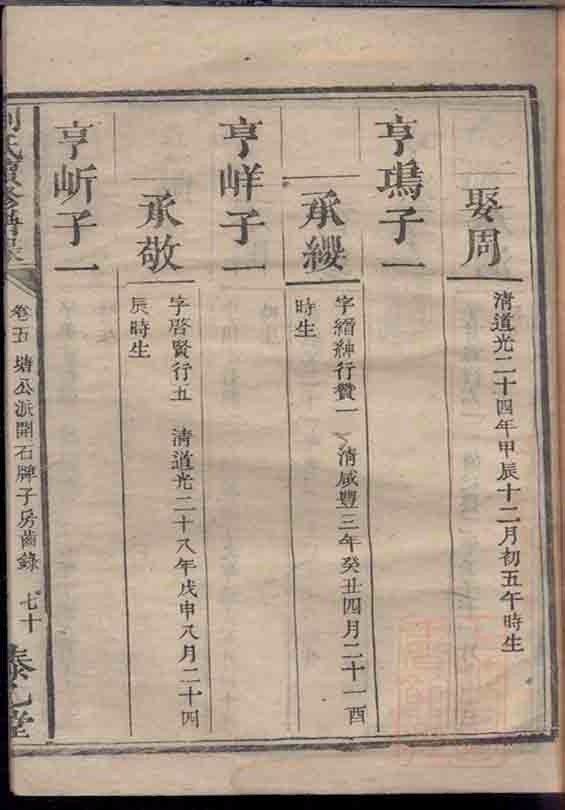 娶周
清道光二十四年甲辰十二月初五午時生
亨鳿子一
承纓
字縉紳行贊一 清咸豐三年癸丑四月二十一酉
時生
亨㟄子一
承敬
字啓賢行五 清道光二十八年戊申八月二十四
辰時生
亨㟁子一
卷五 塘公派開石牌子房齒錄 七十